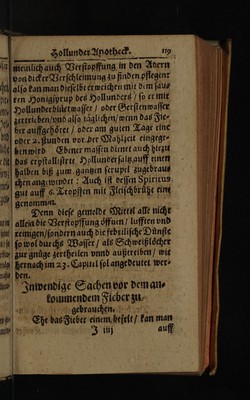 Hollunder Apotheck. 119
meinlich auch Verstopffung in den Adern
von dicker Verschleimung zu finden pflegent
also kan man dieselbe erweichen mit dem sau-
ren Honigsyrup des Hollunders / so er mit
Hollunderblütewasser / oder Gerstenwasser
zertrieben / und also täglichen / wenn das Fie-
ber auffgehöret / oder am guten Tage eine
oder 2. stunden vor der Mahlzeit eingege-
ben wird Ebener massen dienet auch hierzu
das crystallisirte Hollundersaltz, auff einen
halben biß zum gantzen scrupel zugebrau-
chen angewendet : Auch ist dessen Spiritus,
gut auff 6. Tropffen mit Fleischbrühe ein
genommen.
Denn diese gemelde Mittel alle nicht
allein die Verstopffung öffnen / lufften und
reinigen / sondern auch die febrilische Dünste
so wol durchs Wasser / als Schweißlöcher
zur gnüge zertheilen unnd außtreiben / wie
hernach im 23. Capitul sol angedeutet wer-
den.
Inwendige Sachen vor dem an-
kommendem Fieber zu
gebrauchen.
Ehe das Fieber einem befelt / kan man
J iiij auff